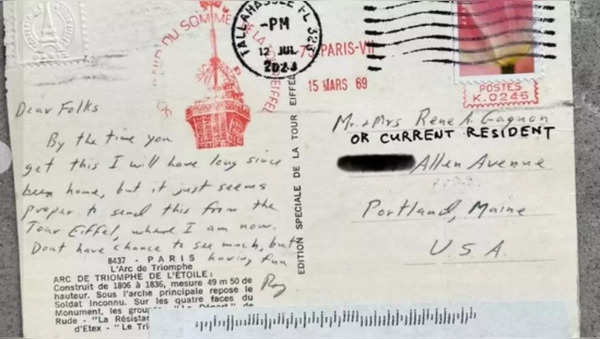 TALLAHASSEE FL 323
-PM
12 JUL
2023
PARIS-VII
15 MARS 69
POSTES
K.0245
Dear Folks
By the time you
get this I will have long since
been home, but it just seems
proper to send this from the
Tour Eiffel, where I am now.
Dont have chance to see much, but
having fun
Roy
Mr. & Mrs Rene A Gagnon
OR CURRENT RESIDENT
Allen Avenue
Portland, Maine
U.S.A.
EDITION SPECIALE DE LA TOUR EIFFEL
8437 - PARIS
L'Arc de Triomphe
ARC DE TRIOMPHE DE L'ÉTOILE:
Construit de 1806 à 1836, mesure 49 m 50 de
hauteur. Sous l'arche principale repose le
Soldat Inconnu. Sur les quatre faces du
Monument, les
Rude - "La Résistan
d'Etex - "Le Tri